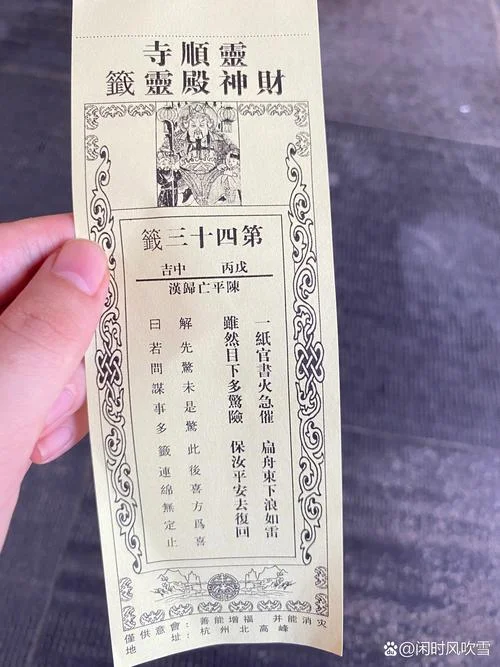 靈順寺
財神殿靈籤
第四十三籤
戌丙 中吉
陳平亡歸漢
一紙官書火急催 扁舟東下浪如雷
雖然目下多驚險 保汝平安去復回
解先驚未是驚 此後喜方爲喜
曰若問謀事多 籤連綿無定止
僅供意會：善能增福 并能消灾
地址：杭州北高峰
@闲时风吹雪